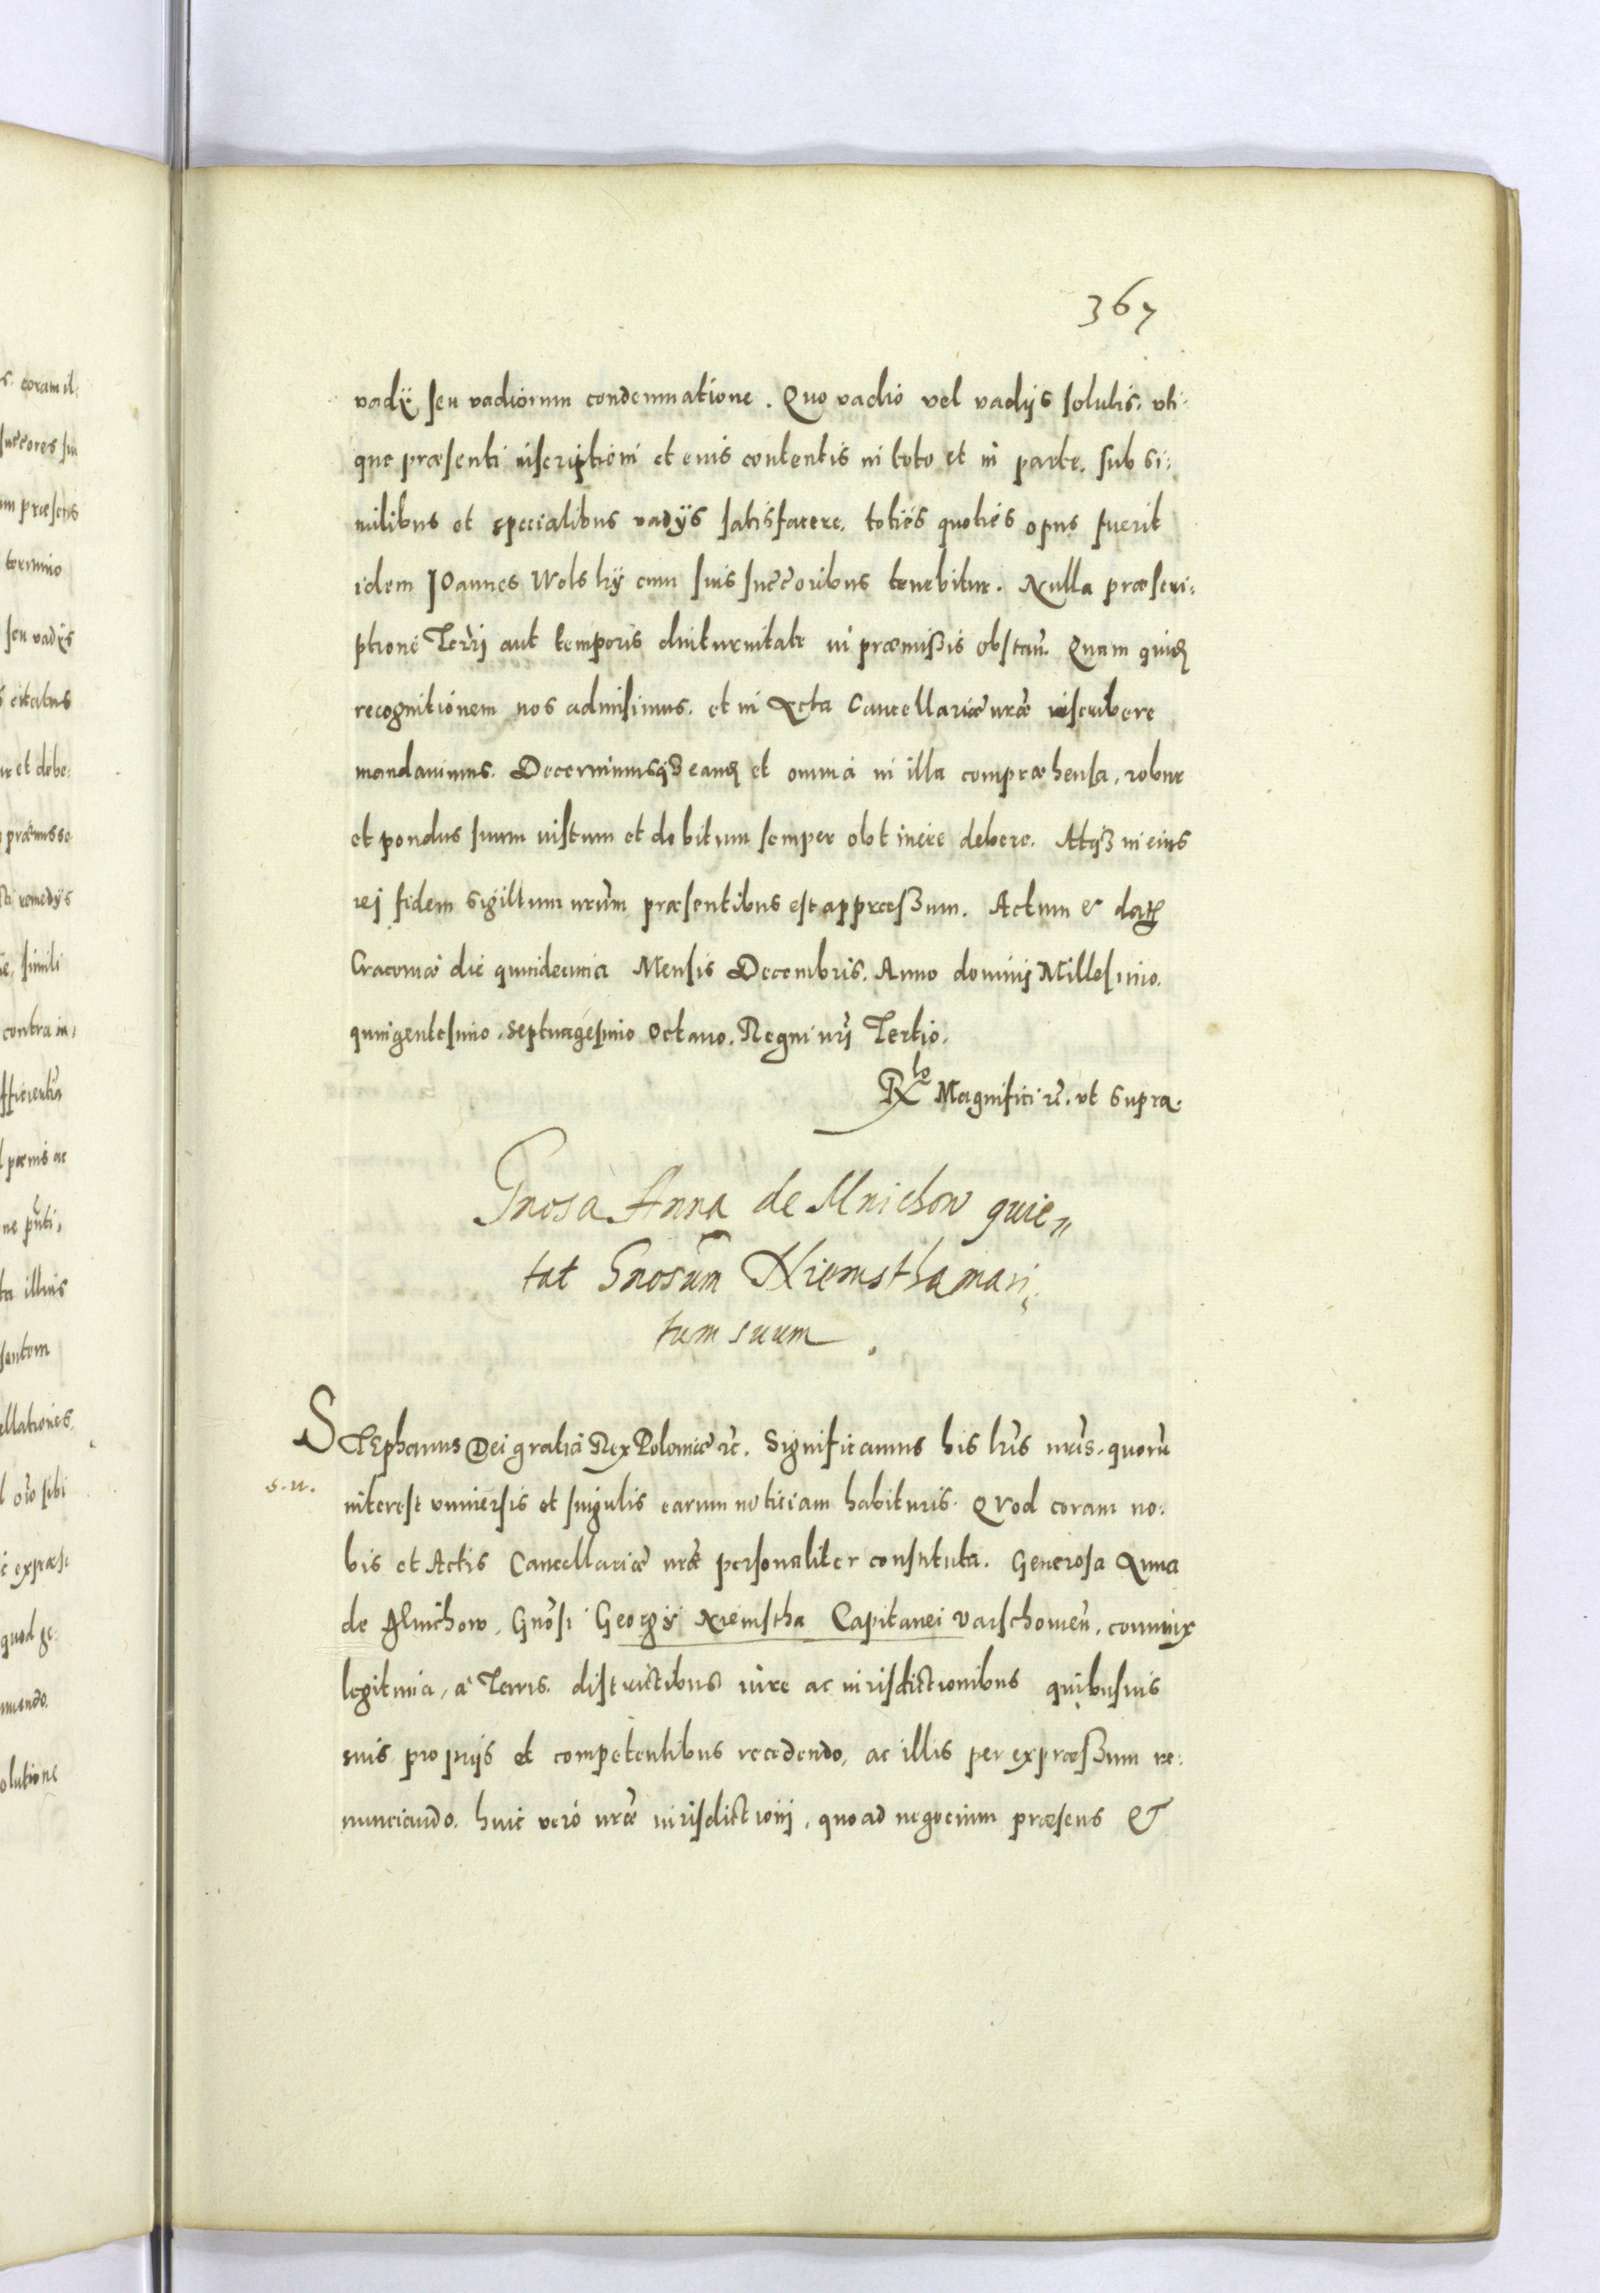 367
vadÿ seu vadiorum condemnatione. Quo vadio vel vadÿs solutis. vti:
que præsenti inscriptioni et euis contentis in toto et in parte, sub si:
milibus et specialibus vadÿs satisfacere, totiés quotiés opus fuerit
idem Ioannes Wolskÿ cum suis succ̃oribus tenebitur. Nulla præscri:
ptione Terrj aut temporis diuturnitate in præmissis obstañ. Quam quidẽ
recognitionem nos admisimus. et in Acta Cancellariæ nr̃æ inscribere
mandauimus. Decernimusqȝ eandẽ et omnia in illa compræhensa, robur
et pondus suum iustum et debitum semper obtinere debere. Atqȝ in eius
rej fidem sigillum nr̃um præsentibus est appressum. Actum & datũ
Cracouiæ die quindecima Mensis Decembris. Anno dominj Millesimo.
quingentesimo. septuagesimo octauo. Regni nr̃i Tertio.
Rlo Magnifici rc̃. vt supra.
Gnosa Anna de Mnichow quie„
tat Gnosum̃ Niemstha mari:
tum suum.
STEphanus Dei gratia Rex Poloniæ rc̃. Significamus his lr̃is nr̃is. quorũ
s. n.
interest vniuersis et singulis earum noticiam habituris. Quod coram no:
bis et Actis Cancellariæ nr̃æ personaliter constituta. Generosa Anna
de Mnichow, Gnõsi Georgÿ Niemstha Capitanei Varschouieñ. coniunx
legitima, a Terris. districtibus iure ac iurisdictionibus quibusuis
suis proprijs et competentibus recedendo, ac illis per expræssum re:
nunciando. huic veró nr̃æ iurisdictionj, quoad negocium præsens &
s. coram il:
succ̃ores su
præsens
termino
seu vadÿs
citatus
et debe:
præmisso
remedÿs
simili
contra in:
pænis ac
illius
ellationes.
sibi
quod ge:
olutione